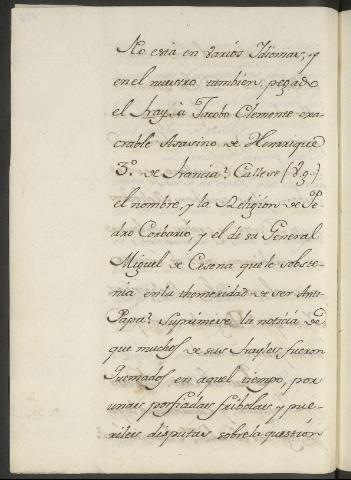 No está en varios Idiomas, y
en el nuestro tambien, pegado
el fray à Jacobo Clemente exe
crable Asasino de Henrique
3.º de francia? Callese (V.g.)
el nombre, y la Religion de Pe
dro Corbario, y el de su General
Miguel de Cesena que le sobste
nia en la themeridad de ser Anti
Papa? Suprimese la noticia de
que muchos de sus frayles fueron
Quemados en aquel tiempo, por
unas porfiadas fribolas y pue
riles disputas sobre la question